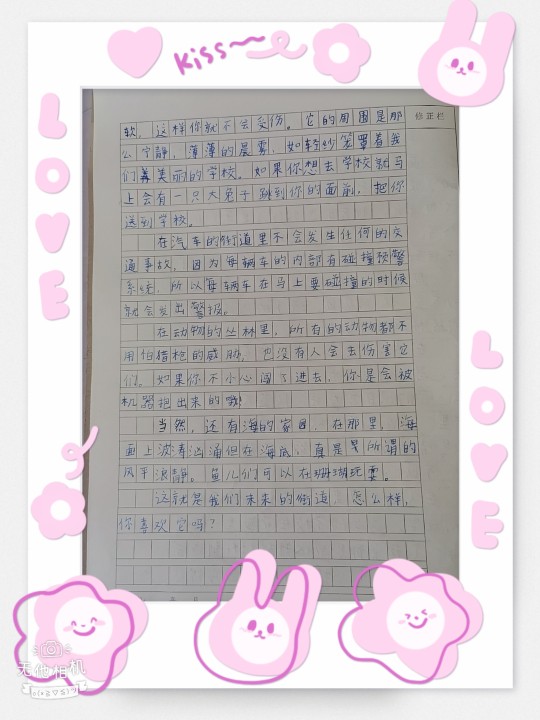 Kiss
LOVE
修正栏
软，这样你就不会受伤。它的周围是那
么宁静，薄薄的晨雾，如轻纱笼罩着我
们美丽的学校。如果你想去学校就马
上会有一只大兔子跳到你的面前，把你
送到学校。
在汽车的街道里不会发生任何的交
通事故，因为每辆车的内部有碰撞预警
系统，所以每辆车在马上要碰撞的时候
就会发出警报。
在动物的丛林里，所有的动物都不
用怕猎枪的威胁，也没有人会去伤害它
们。如果你不小心闯了进去，你是会被
机器抱出来的哦!
当然，还有海的家园，在那里，海
面上波涛汹涌但在海底，真是是所谓的
风平浪静。鱼儿们可以在珊瑚玩耍。
这就是我们未来的街道，怎么样，
你喜欢它吗？
LOVE
无他相机